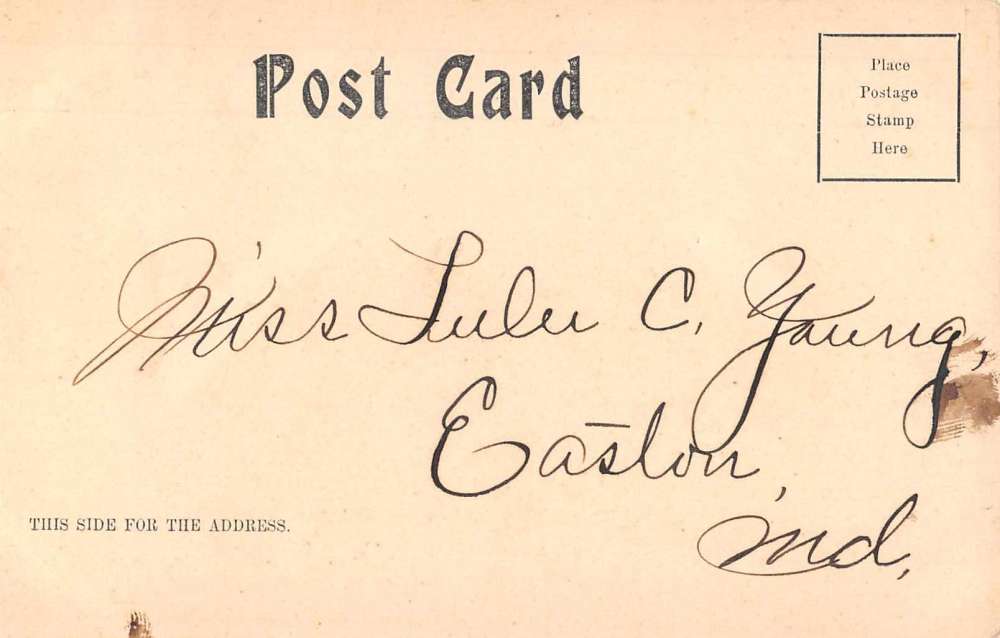 Post Card
Place
Postage
Stamp
Here
Miss Lulu C. Young,
Easton,
Md.
THIS SIDE FOR THE ADDRESS.